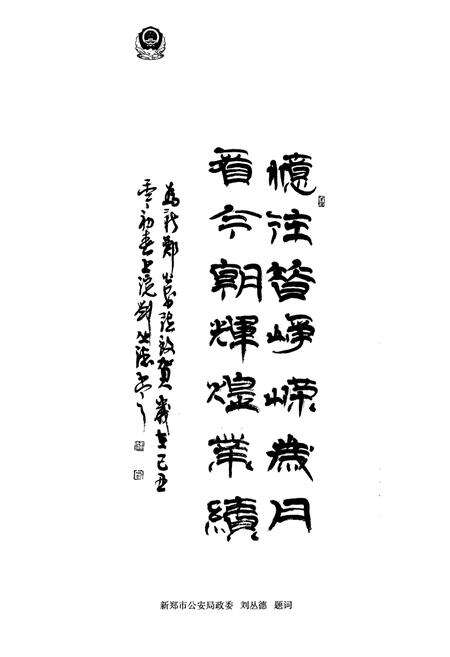 憶往昔崢嶸歲月
看今朝輝煌業績
为新鄭致賀歲在己丑
初春上浣劉丛德
新郑市公安局政委 刘丛德 题词